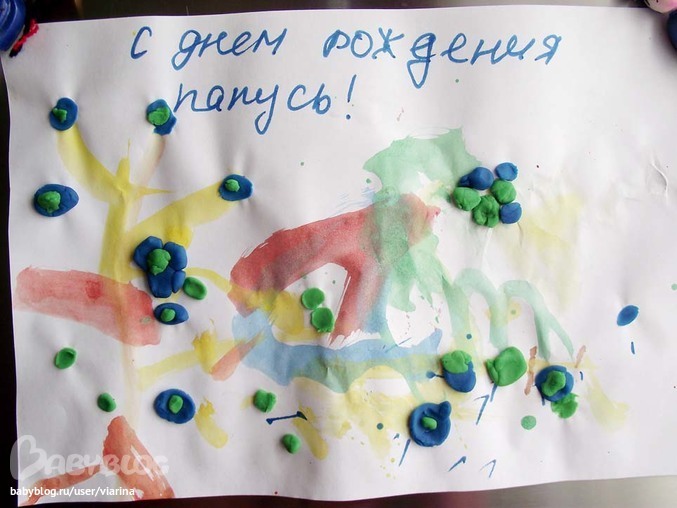 с днем рождения
папусь!
BABYBLOG
babyblog.ru/user/viarina